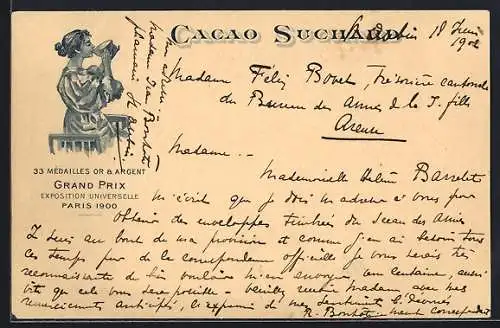 CACAO SUCHARD
St Aubin 18 Juin
1902
Madame Félix Bovet, Trésorière cantonale
du Bureau des Amies de la J. fille
Areuse
Madame.-
Mademoiselle Hélène Barrelet
m'écrit que je dois m'adresser à vous pour
obtenir des enveloppes timbrées du Sceau des Amies
Je suis au bout de ma provision et comme j'en ai besoin tous
ces temps pour de la correspondance officielle je vous serais très
reconnaissante de bien vouloir m'en envoyer une centaine, aussi
vite que cela vous sera possible - veuillez recevoir Madame avec mes
remerciements anticipés, l'expression de mes sentiments dévoués
Mon adresse :-
Madame
St Aubin
33 MÉDAILLES OR & ARGENT
GRAND PRIX
EXPOSITION UNIVERSELLE
PARIS 1900